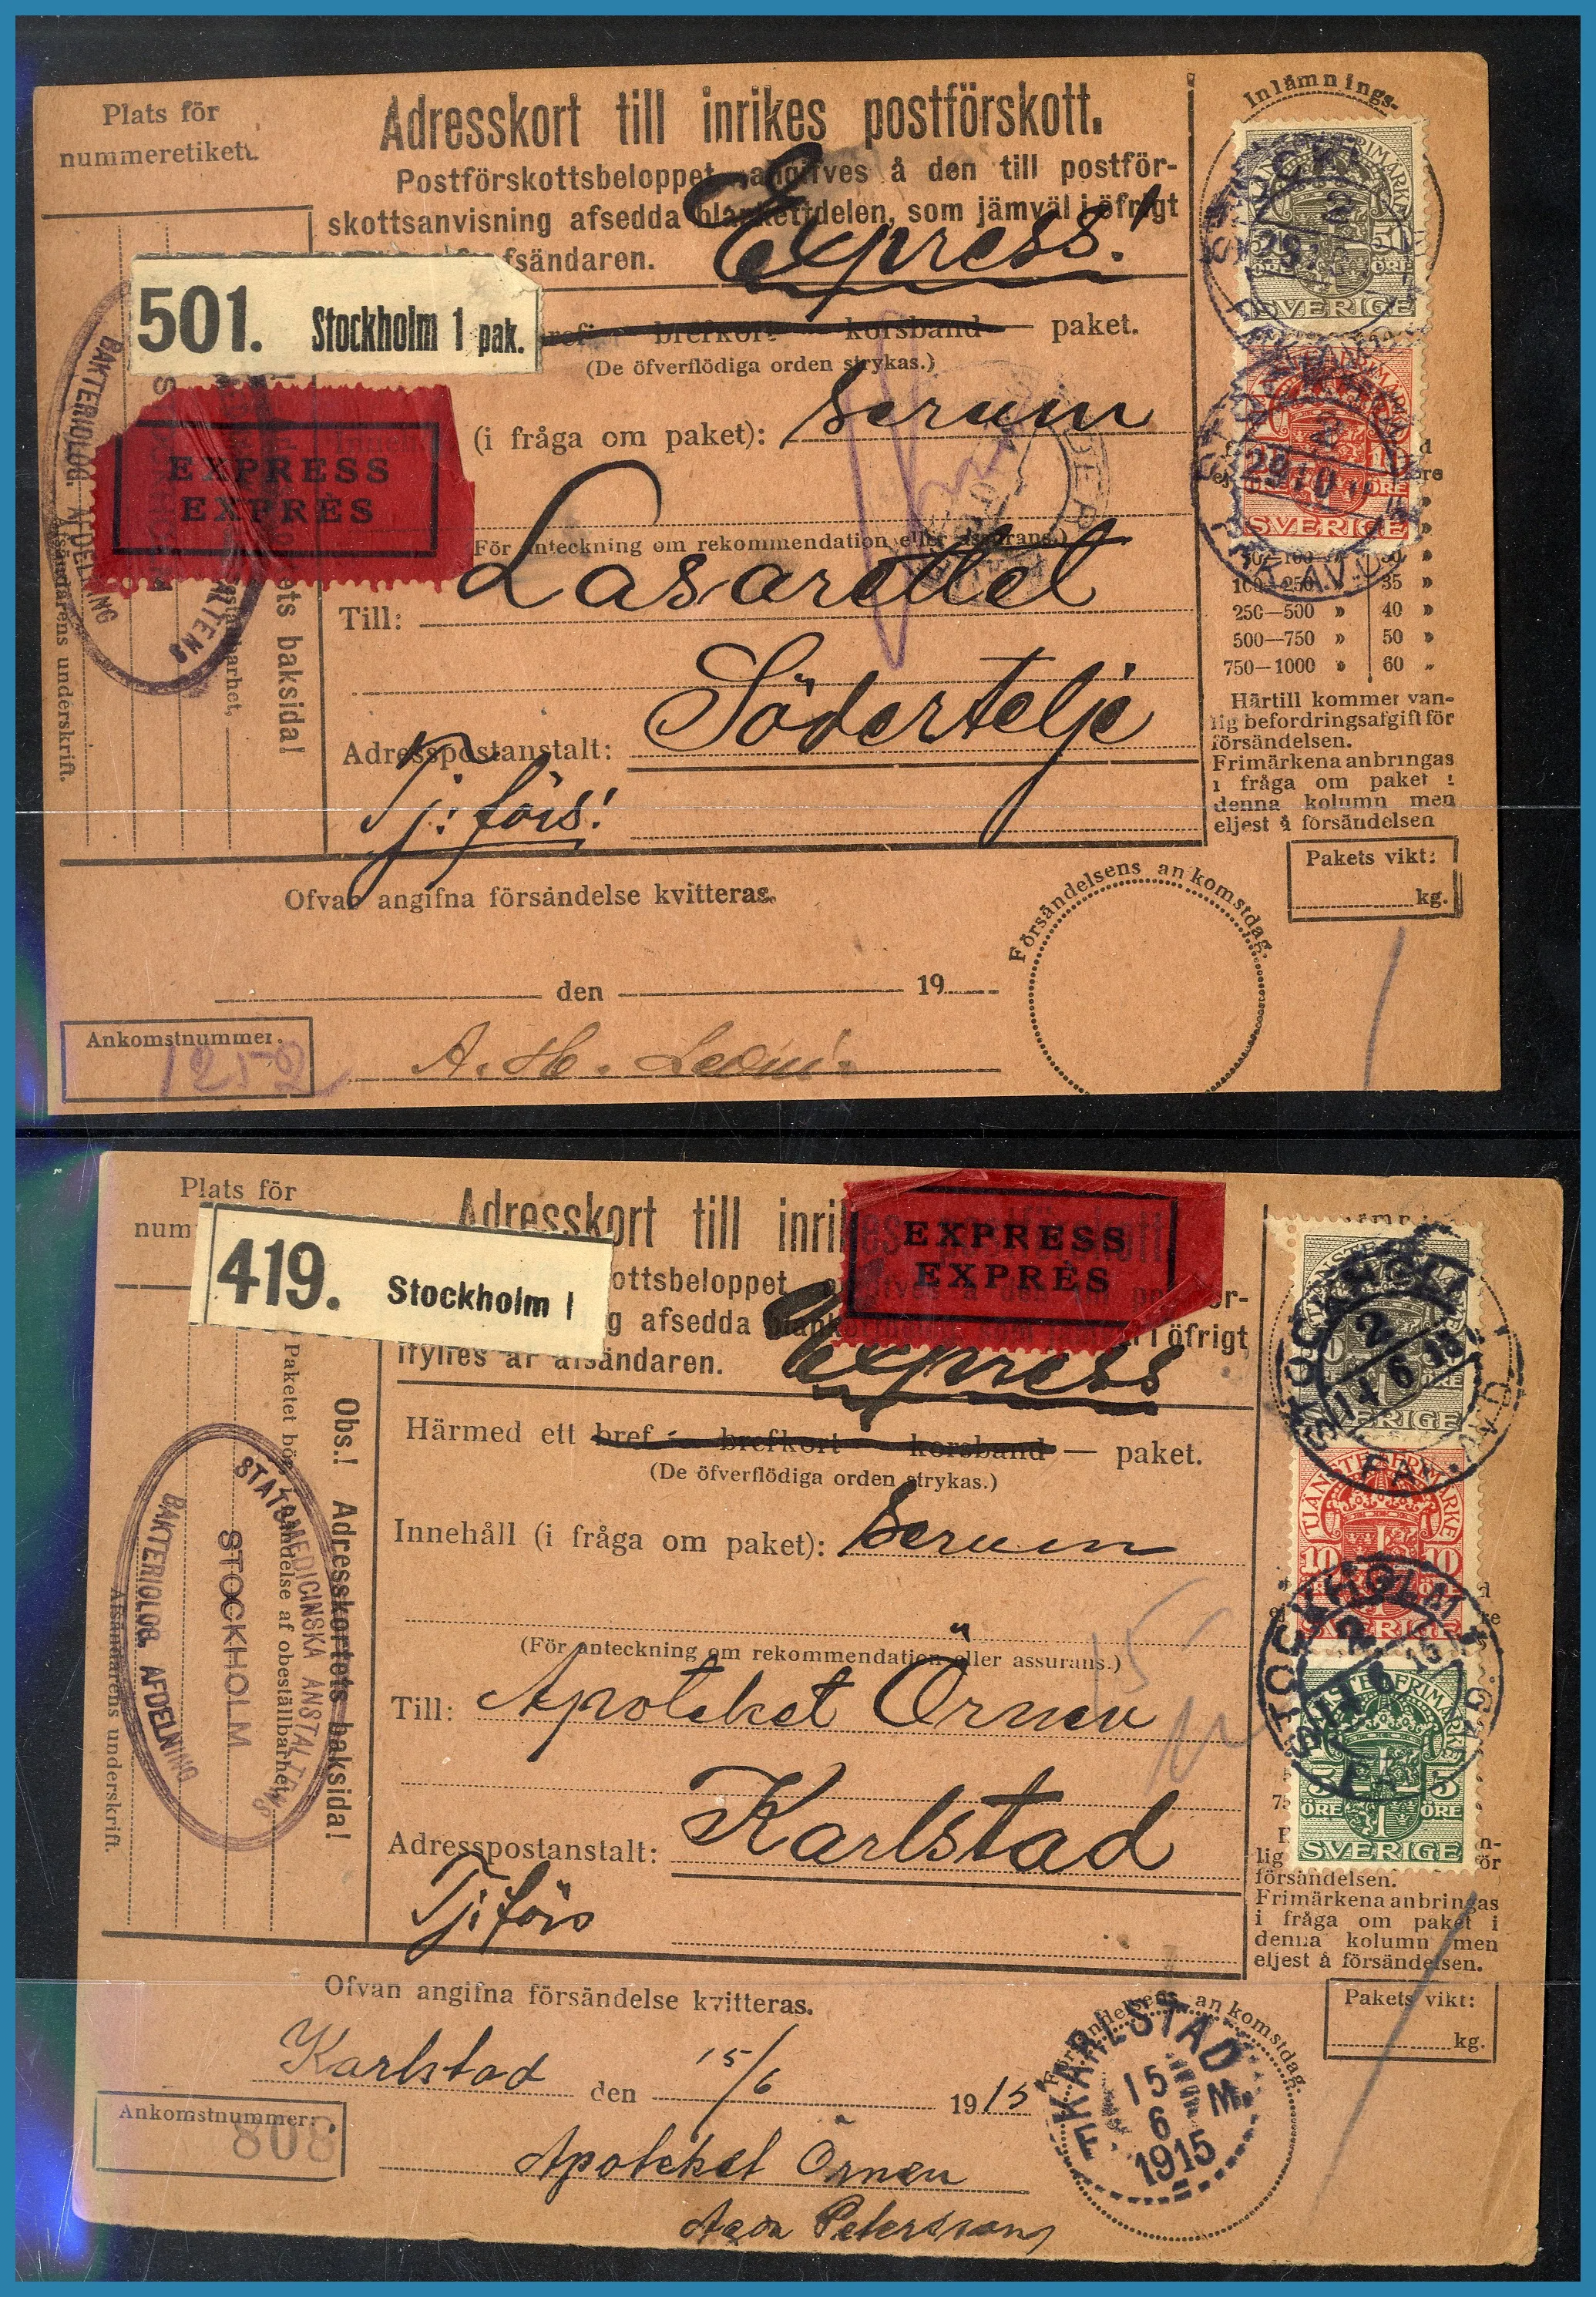 Plats för
nummeretikett.
Adresskort till inrikes postförskott.
Postförskottsbeloppet angifves å den till postför-
skottsanvisning afsedda blankettdelen, som jämväl i öfrigt
afsändaren.
Express!
501. Stockholm 1 pak.
brefkort korsband — paket.
(De öfverflödiga orden strykas.)
EXPRESS
EXPRÈS
(i fråga om paket): Serum
(För anteckning om rekommendation eller assurans.)
Till: Lasarettet
Adresspostanstalt: Södertelje
Tj: förs:
BAKTERIOLOG. AFDELNING
Afsändarens underskrift.
baksida!
Inlämnings-
TJÄNSTEFRIMÄRKE
ÖRE
SVERIGE
TJÄNSTEFRIMÄRKE
10
ÖRE
SVERIGE
2
29 10
100—250 » 35 »
250—500 » 40 »
500—750 » 50 »
750—1000 » 60 »
Härtill kommer van-
lig befordringsafgift för
försändelsen.
Frimärkena anbringas
i fråga om paket i
denna kolumn men
eljest å försändelsen
Pakets vikt:
kg.
Ofvan angifna försändelse kvitteras.
Försändelsens ankomstdag.
den 19
Ankomstnummer.
1252
A. H.
Plats för
num
Adresskort till inrikes
419. Stockholm 1
ottsbeloppet
g afsedda
i öfrigt
ifylles af afsändaren.
EXPRESS
EXPRÈS
Express
Härmed ett bref — brefkort — korsband — paket.
(De öfverflödiga orden strykas.)
Innehåll (i fråga om paket): Serum
(För anteckning om rekommendation eller assurans.)
Till: Apoteket Örnen
Adresspostanstalt: Karlstad
Tj: förs
Obs.! Adresskortets baksida!
Paketet bör
händelse af obeställbarhet,
Afsändarens underskrift.
STATSMEDICINSKA ANSTALTENS
STOCKHOLM
BAKTERIOLOG. AFDELNING
15
STOCKHOLM 1
2
14 6 15
SVERIGE
TJÄNSTEFRIMÄRKE
10 10
SVERIGE
STOCKHOLM 1
TJÄNSTEFRIMÄRKE
5 5
ÖRE ÖRE
SVERIGE
lig
försändelsen.
Frimärkena anbringas
i fråga om paket i
denna kolumn men
eljest å försändelsen.
Pakets vikt:
kg.
Ofvan angifna försändelse kvitteras.
Försändelsens ankomstdag.
Karlstad den 15/6 1915
KARLSTAD
15
6
1915
Ankomstnummer:
808
Apoteket Örnen
Petersson